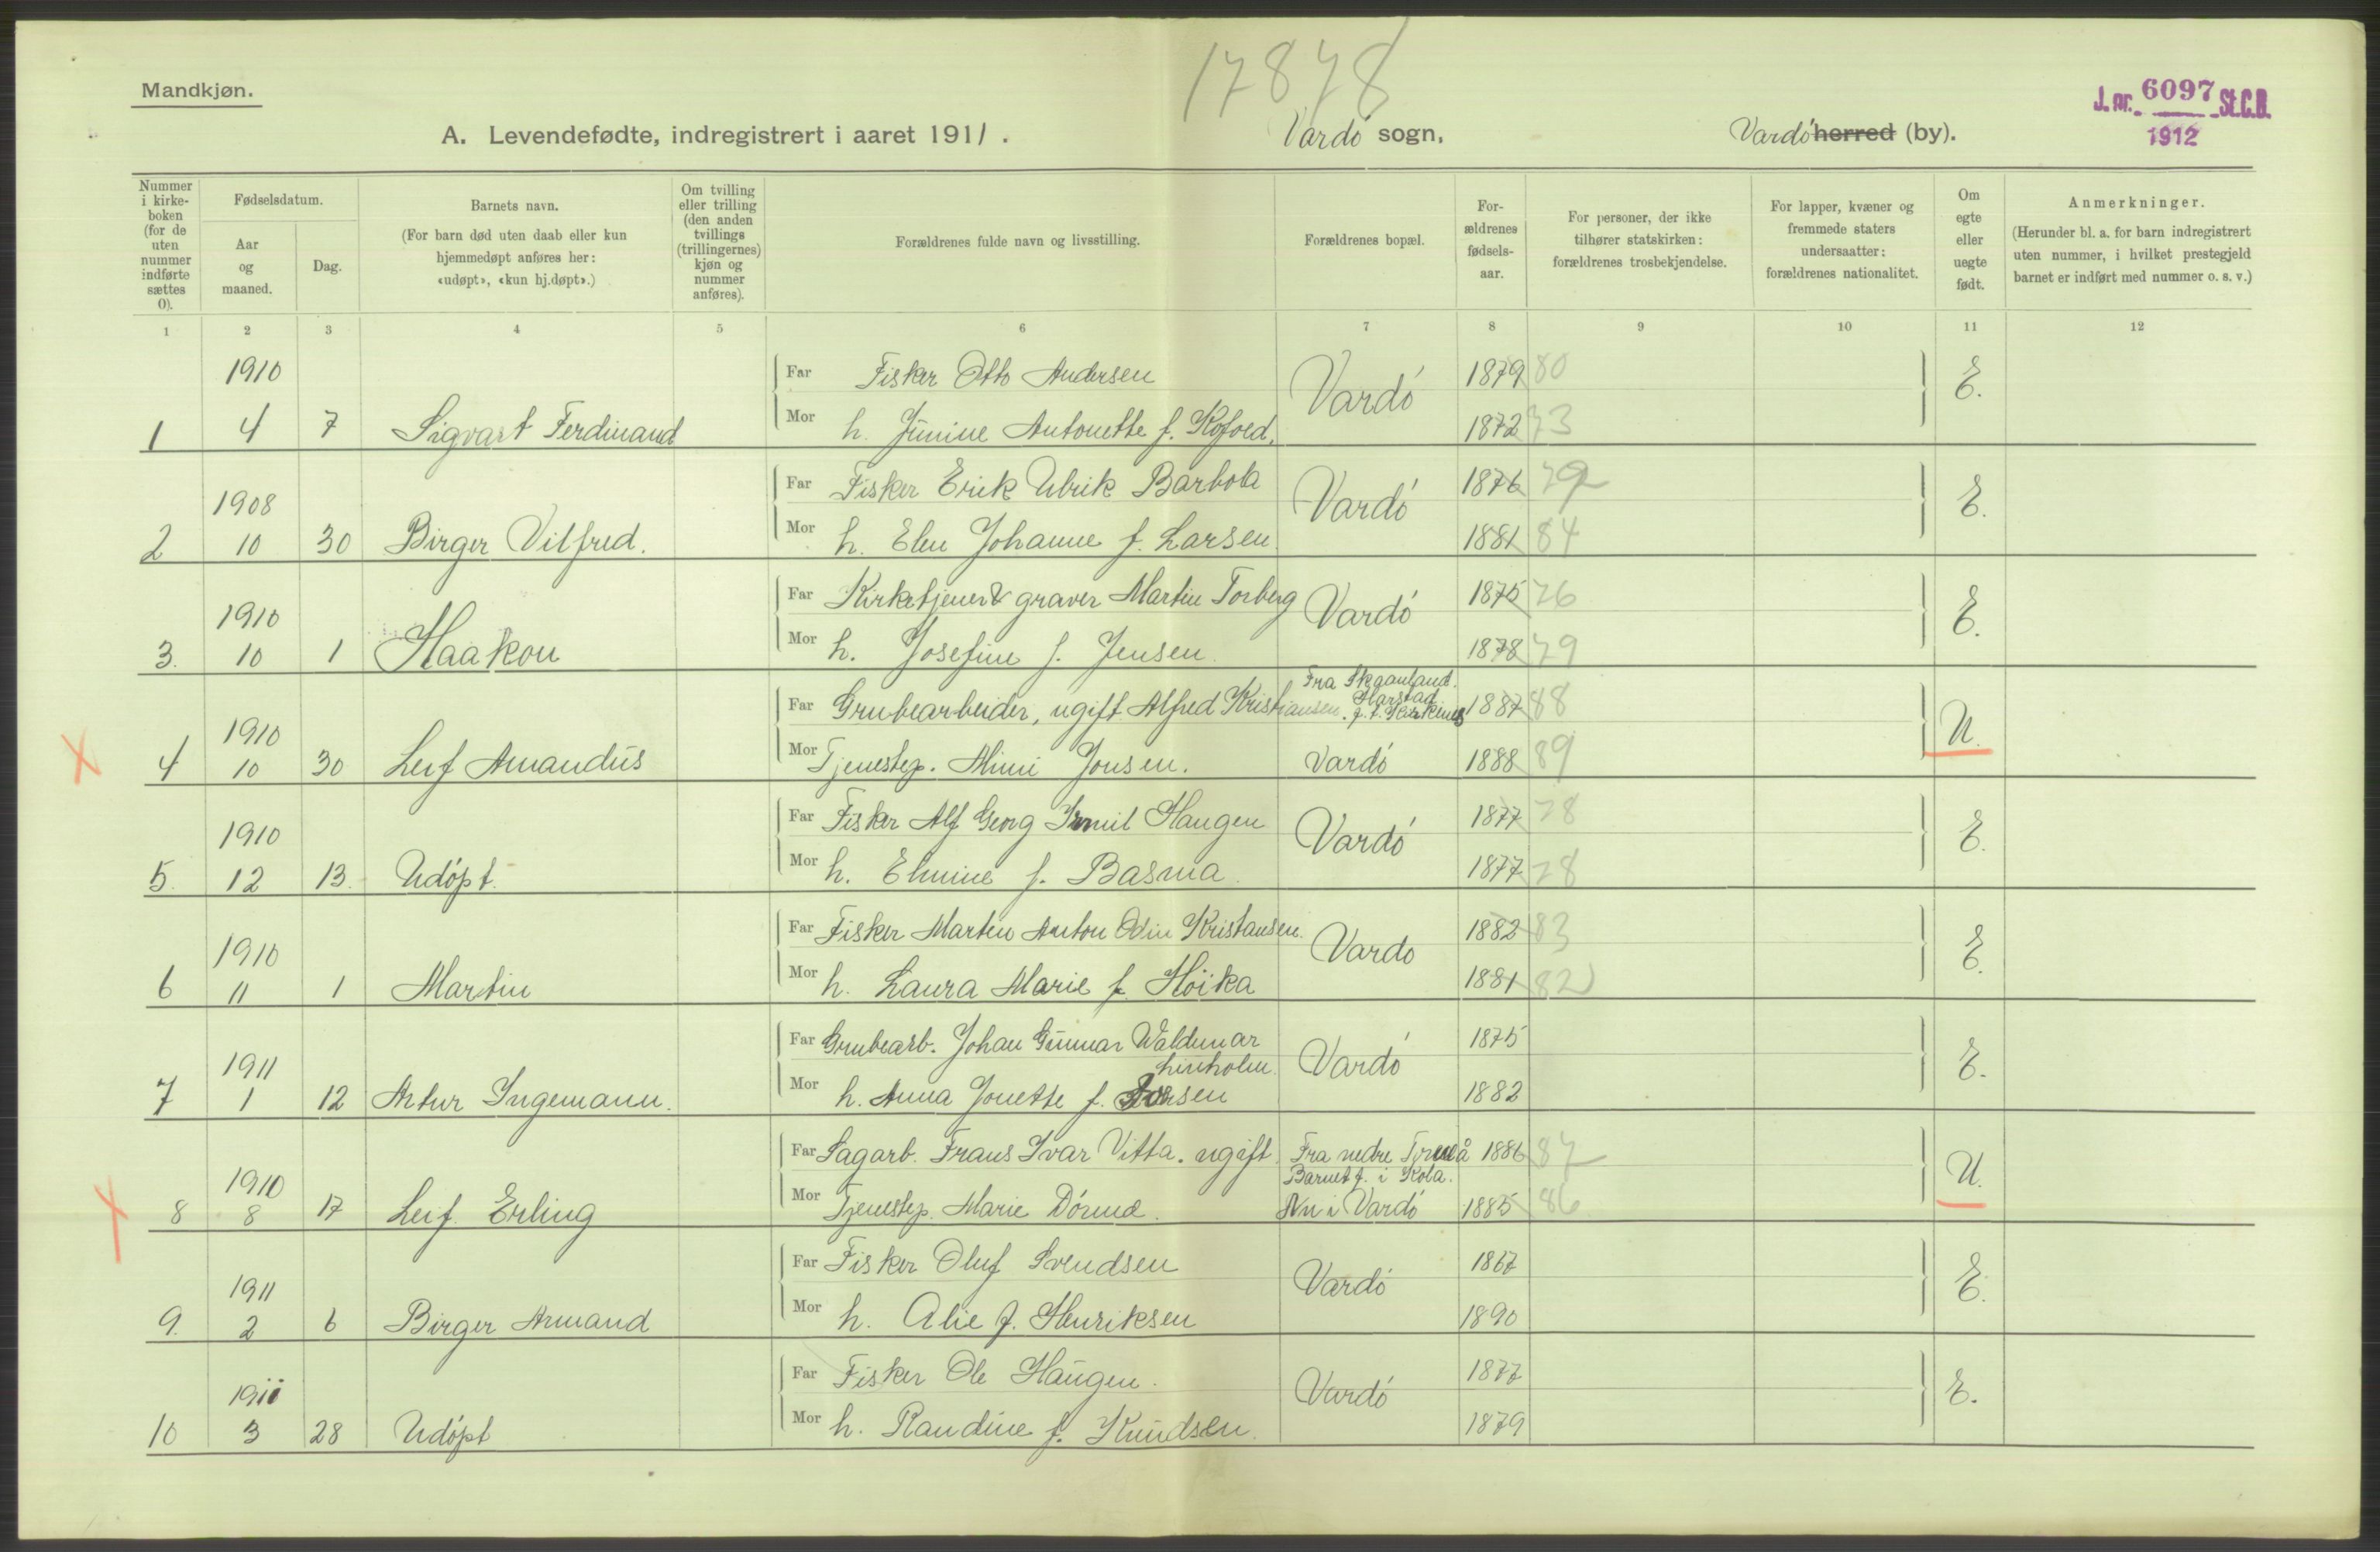 17878
Mandkjøn.
J. nr. 6097 St.C.B.
1912
A. Levendefødte, indregistrert i aaret 1911. Vardö sogn, Vardö herred (by).
Nummer i kirkeboken (for de uten nummer indførte sættes 0).
Fødselsdatum.
Aar og maaned.
Dag.
Barnets navn.
(For barn død uten daab eller kun hjemmedøpt anføres her: «udøpt», «kun hj.døpt».)
Om tvilling eller trilling (den anden tvillings (trillingernes) kjøn og nummer anføres).
Forældrenes fulde navn og livsstilling.
Forældrenes bopæl.
For-ældrenes fødsels-aar.
For personer, der ikke tilhører statskirken: forældrenes trosbekjendelse.
For lapper, kvæner og fremmede staters undersaatter: forældrenes nationalitet.
Om egte eller uegte født.
Anmerkninger.
(Herunder bl. a. for barn indregistrert uten nummer, i hvilket prestegjeld barnet er indført med nummer o. s. v.)
1 2 3 4 5 6 7 8 9 10 11 12
1910 Far Fisker Otto Andersen Vardö 1879 80 E.
1 4 7 Sigvart Ferdinand Mor h. Junine Antonette f. Kofoed. 1872 73
1908 Far Fisker Erik Ulrik Barbola Vardö 1876 79 E.
2 10 30 Birger Vilfred. Mor h. Elen Johanne f. Larsen. 1881 84
1910 Far Kirketjener & graver Martin Torberg Vardö 1875 76 E.
3. 10 1 Haakon Mor h. Josefine f. Jensen. 1878 79
1910 Far Grubearbeider, ugift Alfred Kristiansen. Fra Skaanland. Harstad f. t. Kirkenes 1887 88 U.
4 10 30 Leif Amandus Mor Tjenestep. Mimi Jonsen. Vardö 1888 89
1910 Far Fisker Alf Georg Haugen Vardö 1877 78 E.
5. 12 13. Udöpt. Mor h. Elmine f. Basma. 1877 78
1910 Far Fisker Martin Anton Odin Kristansen. Vardo 1882 83 E.
6 11 1 Martin Mor h. Laura Marie f. Höika 1881 82
1911 Far Grubearb. Johan Gunnar Waldemar Linholm. Vardö 1875 E.
7 1 12 Artur Ingemann. Mor h. Anna Jonette f. 1882
1910 Far Sagarb. Frans Ivar Vitta. ugift. Fra nedre Torneå 1886 87 U.
Barnet f. i Kola.
8 8 17 Leif Erling Mor Tjenestep. Marie Nu i Vardö 1885 86
1911 Far Fisker Oluf Svendsen Vardö 1867 E.
9. 2 6 Birger Armand Mor h. Alie f. Henriksen 1890
1911 Far Fisker Ole Haugen. Vardö 1877 E.
10 3 28 Udöpt Mor h. Randine f. Knudsen. 1879